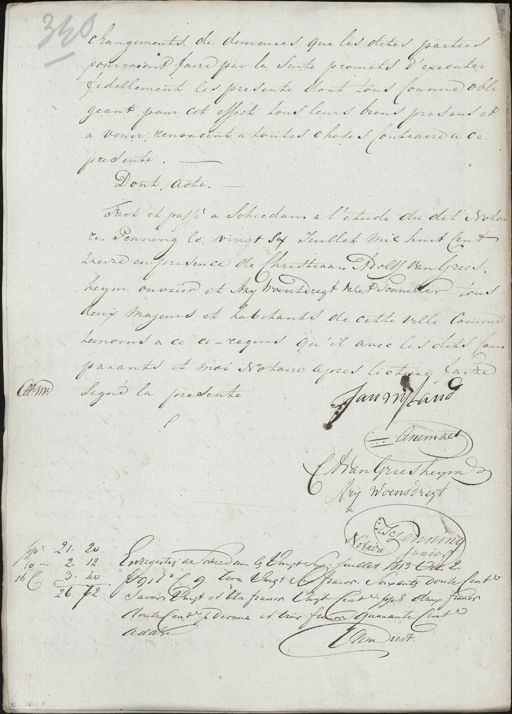 340
changements de demeures que les dites parties
pourroient faire par la suite promets d'executer
fidellement les presente dont tous comme obli
geant pour cet effect tous leurs biens presens et
a venir renoncent a toutes choses contraire a ce
presente.
Dont acte.
Fait et passé a Schiedam a l'etude du dit Notai
re Penning le vingt six Juillet mil huit cent
treize en presence de Christiaan Adolf van Gries
heym ouvrier et Ary Woensdregt tous
deux majeurs et habitants de cette ville comme
temoins a ce requis qu'il avec les dits com
parants et moi Notaire apres lecture faite
signé la presente
Jan Nyland
C A Van Griesheym
Ary Woensdregt
Penning
Notaire
21. 20
10 2. 12
16 C 3. 40
26. 72
Enregistré a Schiedam le Vingt Juillet 1813
francs Soixante douze Cent
Savoir Vingt et un francs Vingt Cent deux francs
douze Cent et trois francs quarante Cent